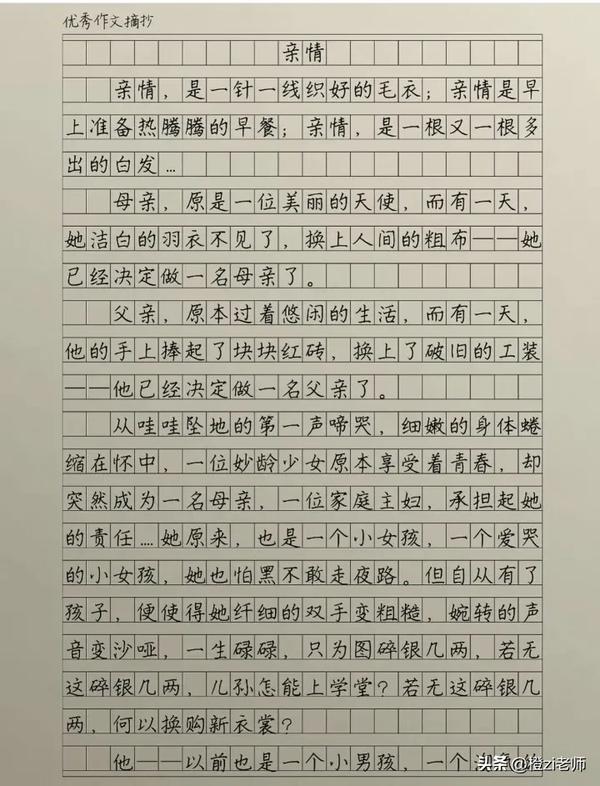 优秀作文摘抄
亲情
亲情，是一针一线织好的毛衣；亲情是早
上准备热腾腾的早餐；亲情，是一根又一根多
出的白发…
母亲，原是一位美丽的天使，而有一天，
她洁白的羽衣不见了，换上人间的粗布——她
已经决定做一名母亲了。
父亲，原本过着悠闲的生活，而有一天，
他的手上捧起了块块红砖，换上了破旧的工装
——他已经决定做一名父亲了。
从哇哇坠地的第一声啼哭，细嫩的身体蜷
缩在怀中，一位妙龄少女原本享受着青春，却
突然成为一名母亲，一位家庭主妇，承担起她
的责任….她原来，也是一个小女孩，一个爱哭
的小女孩，她也怕黑不敢走夜路。但自从有了
孩子，便使得她纤细的双手变粗糙，婉转的声
音变沙哑，一生碌碌，只为图碎银几两，若无
这碎银几两，儿孙怎能上学堂？若无这碎银几
两，何以换购新衣裳？
他——以前也是一个小男孩，一个
头条 @橙zi老师